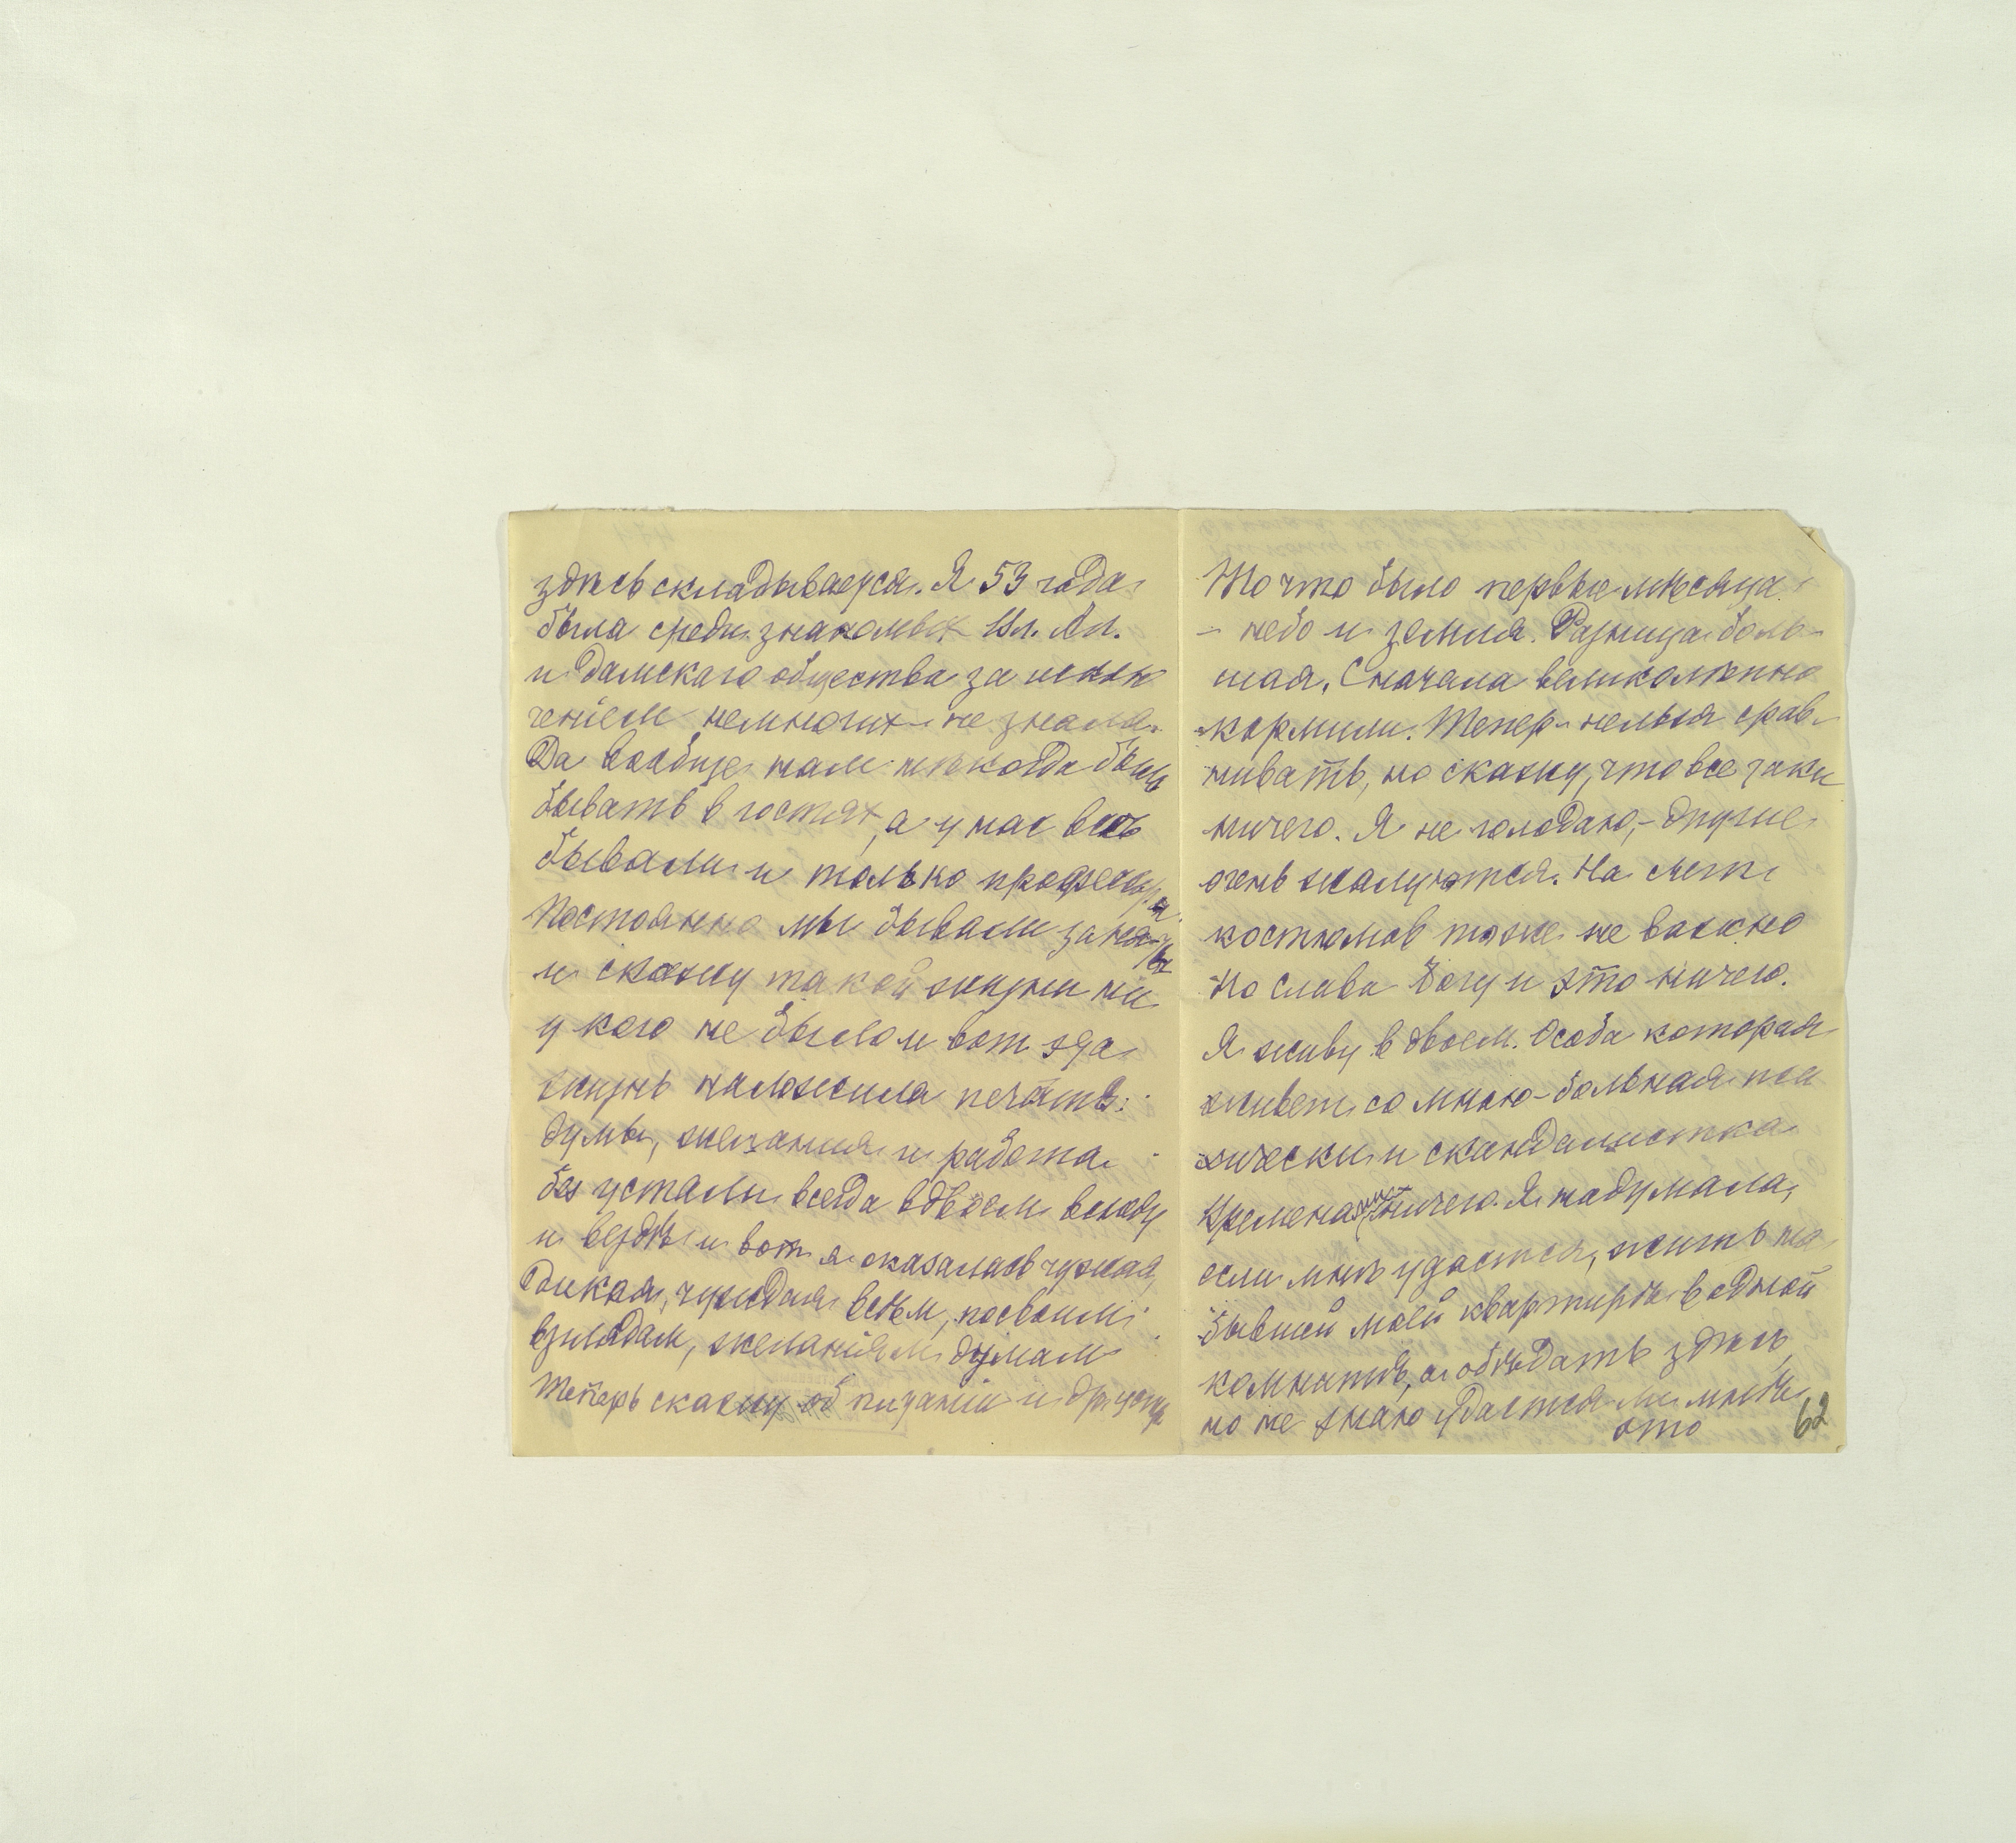 здѣсь складывается. Я 53 года
была среди знакомых Ил. Ал.
и дамскаго общества за исклю
ченіем немногих не знала.
Да вообще нам никогда было
бывать в гостях, а у нас все
бывали и только профессора.
Постоянно мы бывали заняты
и скажу такой жизни ни
у кого не было и вот эта
жизнь наложила печать:
думы, желания и работа
без устали всегда вдвоем всюду
и вездѣ и вот я оказалась чужая,
дикая, чуждая всѣм, по своим
взглядам, желаніям думам
Теперь скажу об питаніи и др.
То что было первые мѣсяца
- небо и земля. Разница боль-
шая. Сначала великолѣпно
кормили. Тепер нельзя срав-
нивать, но скажу, что все таки
ничего. Я не голодаю, - другие
очень жалуются. На счет
костюмов тоже не важно
Но слава Богу и это ничего.
Я живу в двоем. Особа которая
живет со мною - больная пси
хически и скандалистка
Временами ничего. Я надумала,
если мнѣ удастся, жить на
бывшей моей квартирѣ в одной
комнатѣ, а обѣдать здѣсь,
но не знаю удастся ли мнѣ
это
62